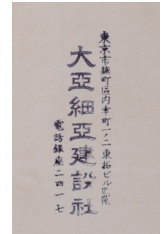 東京市麹町區内幸町一ノ二東拓ビル四階
大亞細亞建設社
電話銀座二四一七